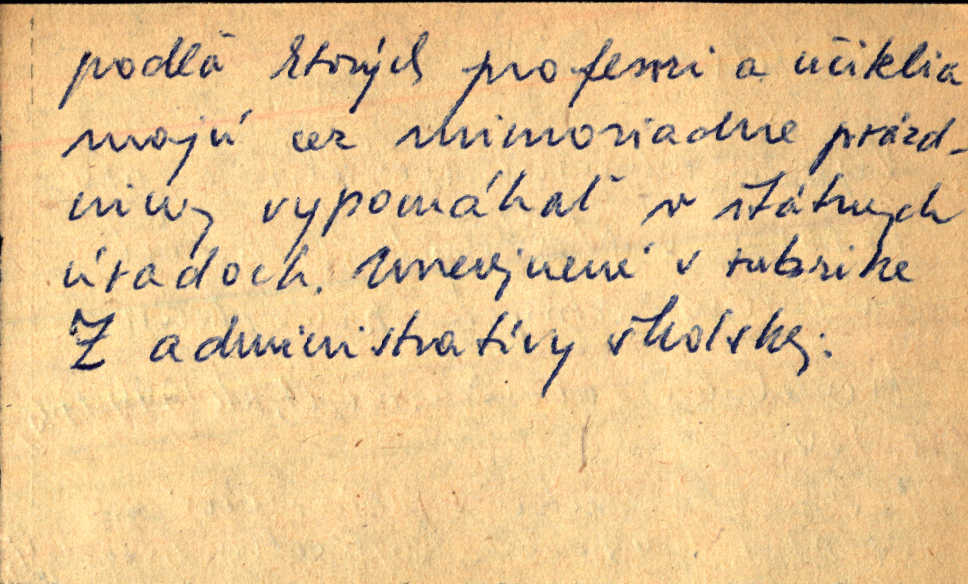 podľa ktorých profesori a učitelia
majú cez mimoriadne prázd-
niny vypomáhať v štátnych
úradoch. Uverejnené v rubrike
Z administratívy školskej.